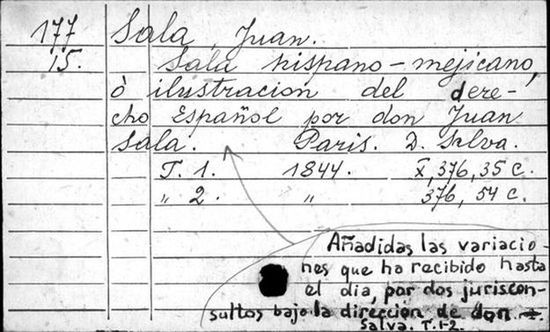 177 Sala, Juan.
15. Sala hispano-mejicano,
ò ilustracion del dere-
cho Español por don Juan
Sala. Paris. D. Salva.
T. 1. 1844. X, 376, 35 c.
„ 2. „ 376, 54 c.
Añadidas las variacio-
nes que ha recibido hasta
el dia, por dos juriscon-
sultos bajo la direccion de don
Salva. T.1-2.